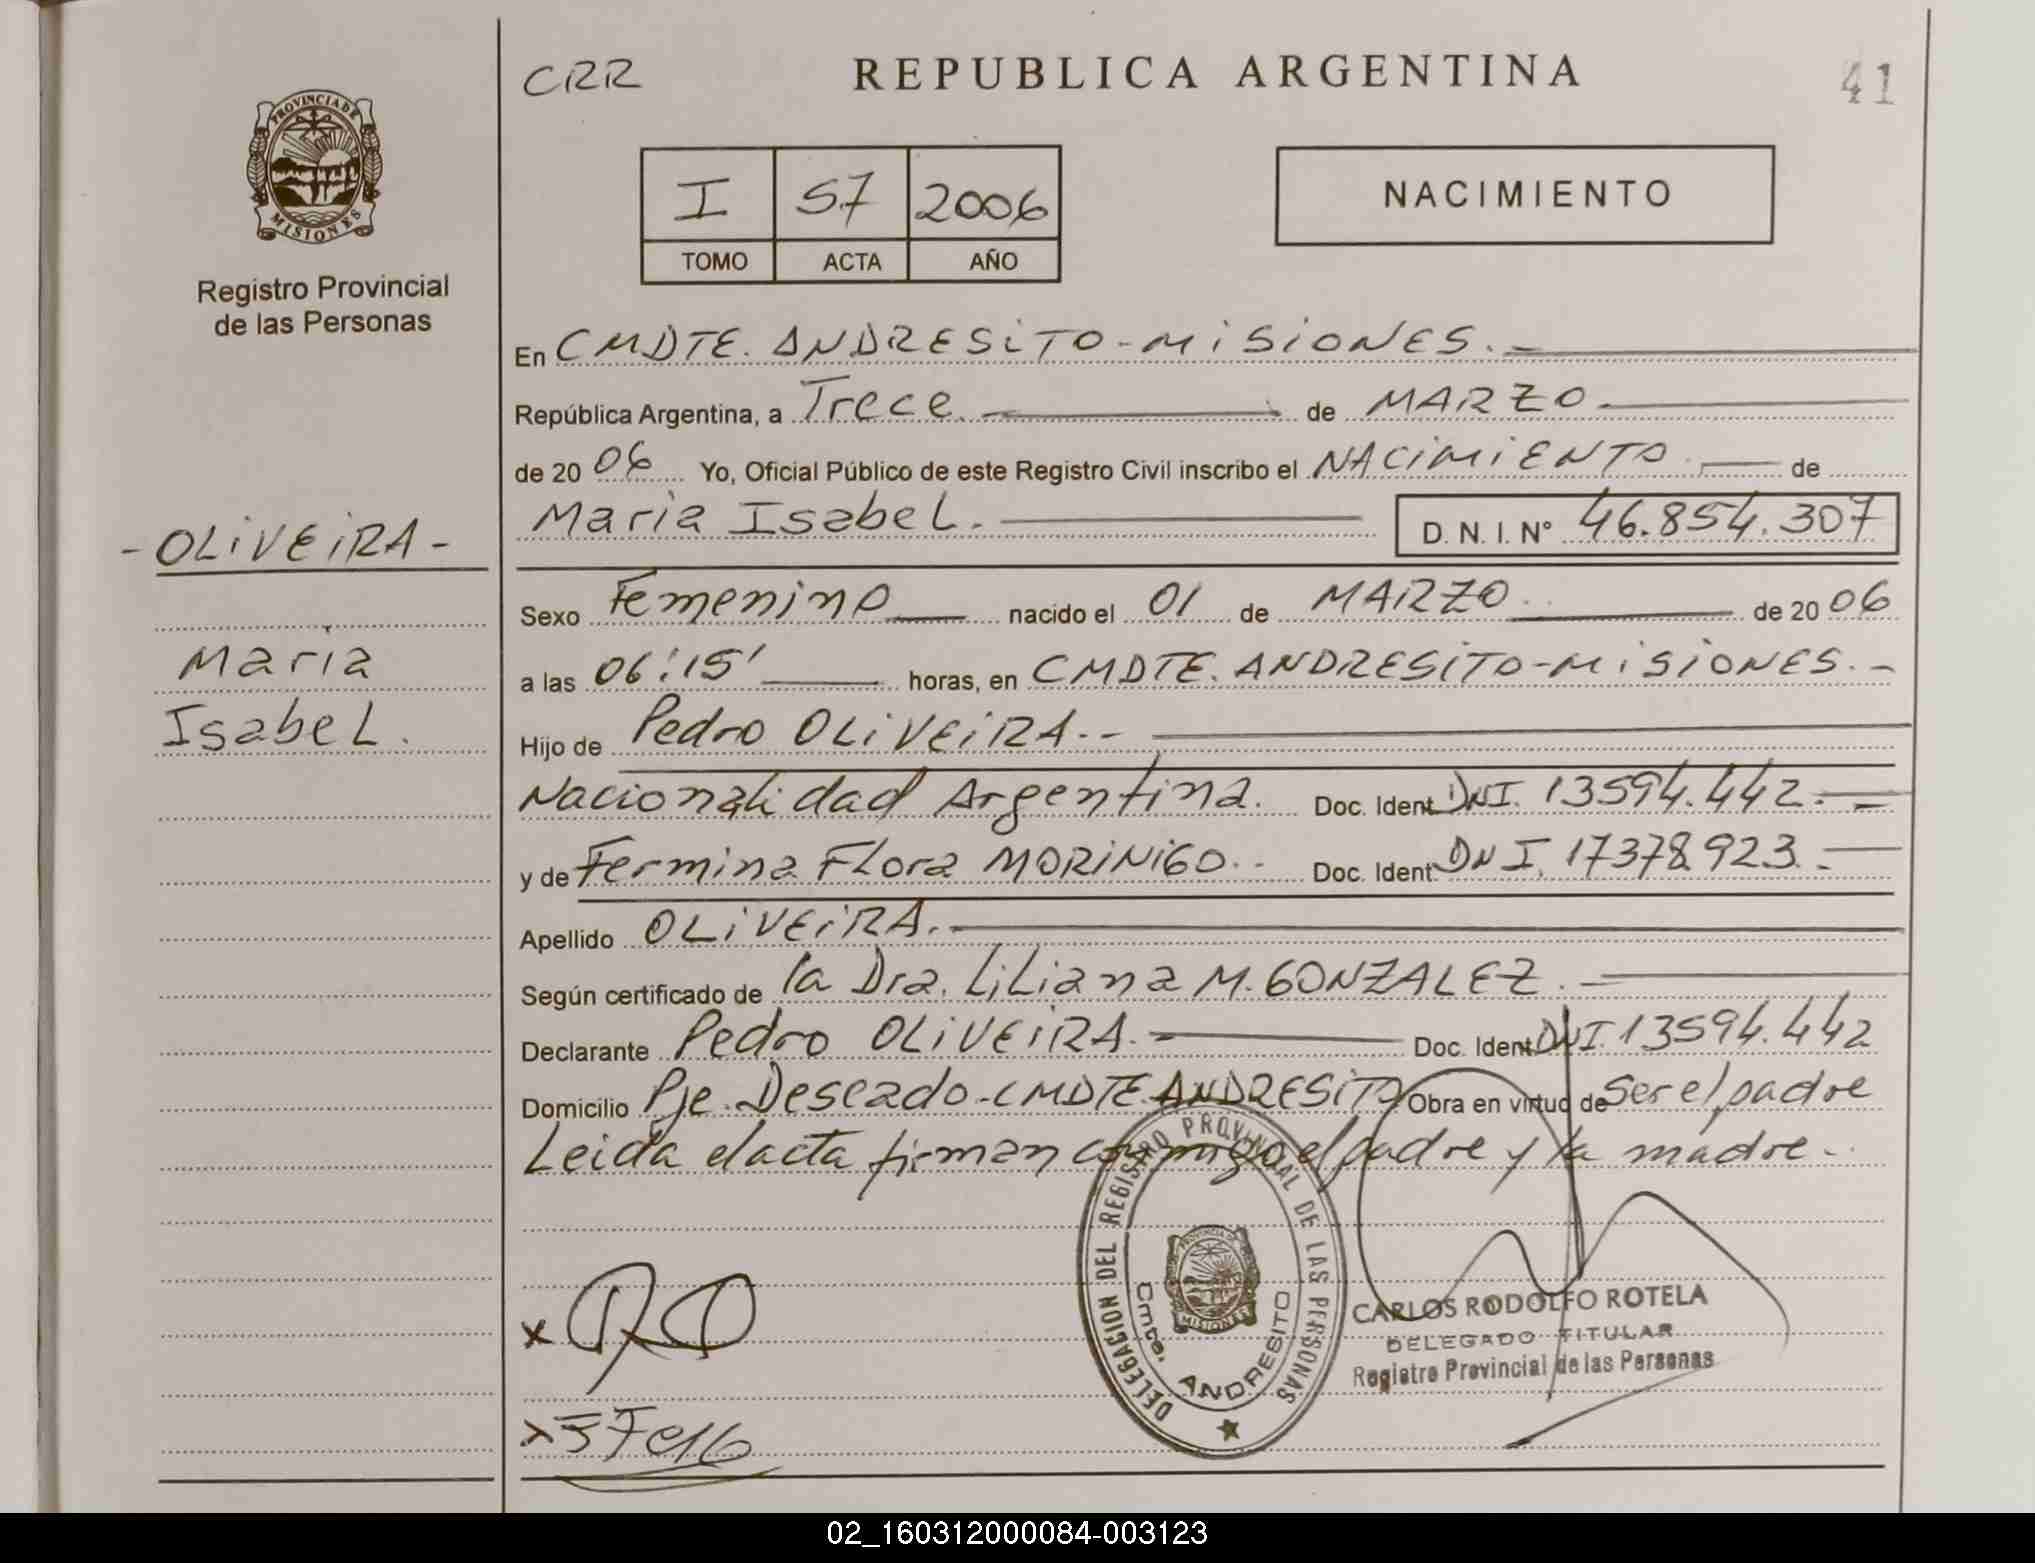 CRR
REPUBLICA ARGENTINA
41
PROVINCIA DE
MISIONES
Registro Provincial
de las Personas
I 57 2006
TOMO ACTA AÑO
NACIMIENTO
En CMDTE. ANDRESITO - MISIONES. -
República Argentina, a Trece. de MARZO.
de 20 06 Yo, Oficial Público de este Registro Civil inscribo el NACIMIENTO de
- OLIVEIRA -
Maria Isabel. D. N. I. N° 46.854.307
Sexo Femenino nacido el 01 de MARZO de 20 06
Maria
a las 06:15' horas, en CMDTE. ANDRESITO - MISIONES. -
Isabel.
Hijo de Pedro OLIVEIRA. -
Nacionalidad Argentina. Doc. Ident. DNI. 13594.442. -
y de Fermina Flora MORINIGO. - Doc. Ident. DNI. 17378923. -
Apellido OLIVEIRA. -
Según certificado de la Dra. Liliana M. GONZALEZ. -
Declarante Pedro OLIVEIRA. - Doc. Ident. DNI. 13594.442
Domicilio Pje. Deseado - CMDTE ANDRESITO Obra en virtud de Ser el padre
Leida el acta firman conmigo el padre y la madre. -
DELEGACION DEL REGISTRO PROVINCIAL DE LAS PERSONAS
PROVINCIA DE
MISIONES
Cmte. ANDRESITO
CARLOS RODOLFO ROTELA
DELEGADO TITULAR
Registro Provincial de las Personas
x
x
02_160312000084-003123